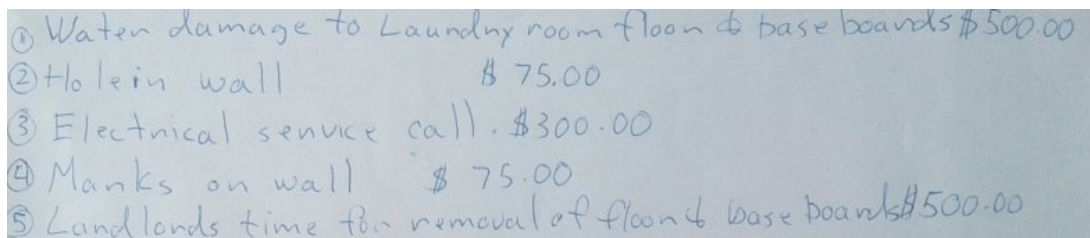 ① Water damage to Laundry room floor & base boards $500.00
② Hole in wall $ 75.00
③ Electrical service call. $300.00
④ Marks on wall $ 75.00
⑤ Landlords time for removal of floor & base boards $500.00